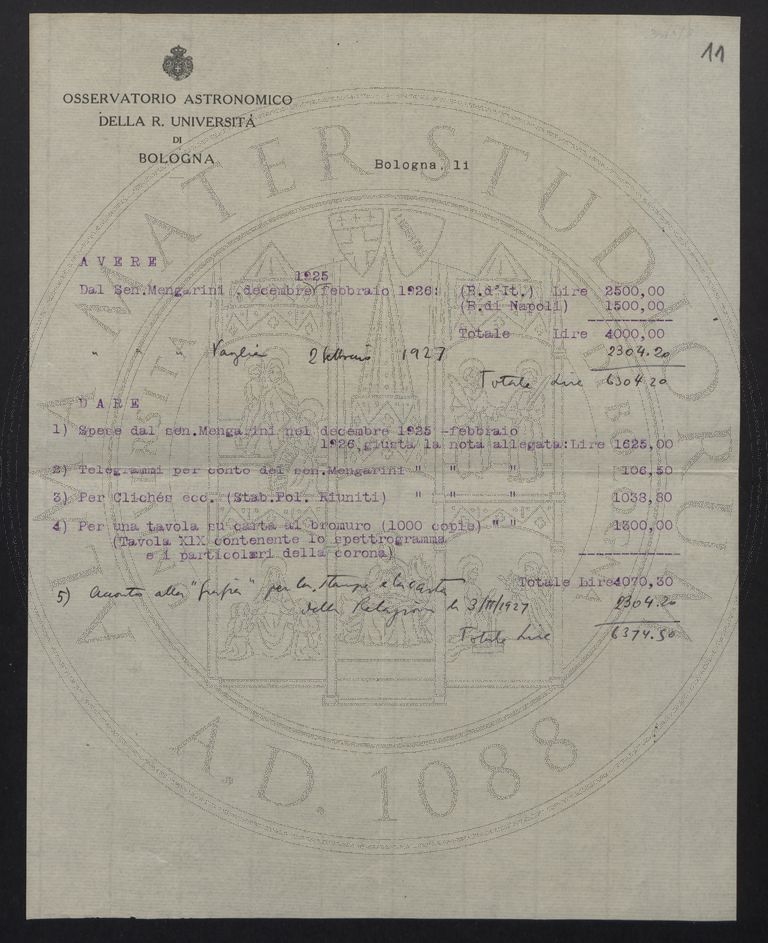 11
OSSERVATORIO ASTRONOMICO
DELLA R. UNIVERSITÀ
DI
BOLOGNA
Bologna, li
A V E R E
1925
Dal Sen.Mengarini ,decembre/febbraio 1926: (B.d'It.) Lire 2500,00
(B.di Napoli) 1500,00
Totale Lire 4000,00
" " " Vaglia 2 febbraio 1927 2304.20
Totale Lire 6304.20
D A R E
1) Spese dal sen.Mengarini nel decembre 1925 -febbraio
1926,giusta la nota allegata:Lire 1625,00
2) Telegrammi per conto del sen.Mengarini " " " 106,50
3) Per Clichés ecc. (Stab.Pol. Riuniti) " " " 1038,80
4) Per una tavola su carta al bromuro (1000 copie) " " 1300,00
(Tavola XIX contenente lo spettrogramma
e i particolari della corona)
Totale Lire4070,30
5) Acconto alla per la stampa e la carta
della Relazione li 3/II/1927 2304.20
Totale Lire 6374.50
ALMA MATER STUDIORUM
A.D. 1088